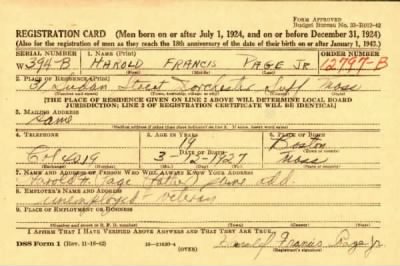 FORM APPROVED
Budget Bureau No. 33-R012-42
REGISTRATION CARD (Men born on or after July 1, 1924, and on or before December 31, 1924)
(Also for the registration of men as they reach the 18th anniversary of the date of their birth on or after January 1, 1943.)
SERIAL NUMBER 1. NAME (Print) ORDER NUMBER
W 394-B HAROLD FRANCIS PAGE JR 12797-B
(First) (Middle) (Last)
2. PLACE OF RESIDENCE (Print)
Street Dorchester Suff Mass
[THE PLACE OF RESIDENCE GIVEN ON LINE 2 ABOVE WILL DETERMINE LOCAL BOARD
JURISDICTION; LINE 2 OF REGISTRATION CERTIFICATE WILL BE IDENTICAL]
3. MAILING ADDRESS
Same
4. TELEPHONE 5. AGE IN YEARS 6. PLACE OF BIRTH
19 Boston
DATE OF BIRTH
Col 4019 3-12-1927 Mass
7. NAME AND ADDRESS OF PERSON WHO WILL ALWAYS KNOW YOUR ADDRESS
Harold Page father same add
8. EMPLOYER'S NAME AND ADDRESS
unemployed - veteran
9. PLACE OF EMPLOYMENT OR BUSINESS
I AFFIRM THAT I HAVE VERIFIED ABOVE ANSWERS AND THAT THEY ARE TRUE.
DSS Form 1 (Rev. 11-16-42) (OVER) Harold Francis Page Jr.